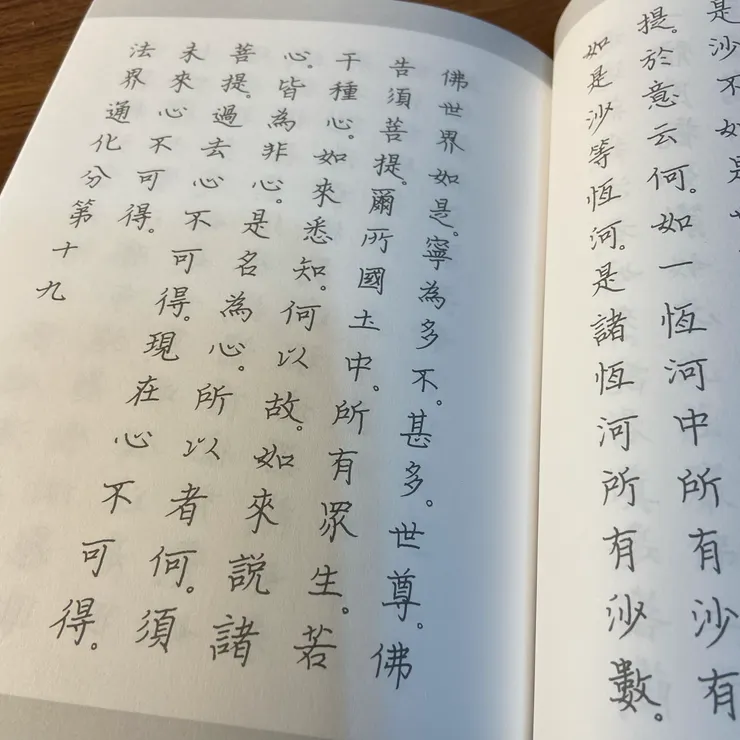 是沙不如是
提。於意云何。如一恆河中所有沙有
如是沙等恆河。是諸恆河所有沙數。
佛世界如是。寧為多不。甚多。世尊。佛
告須菩提。爾所國土中。所有眾生。若
干種心。如來悉知。何以故。如來說諸
心。皆為非心。是名為心。所以者何。須
菩提。過去心不可得。現在心不可得。
未來心不可得。
法界通化分第十九